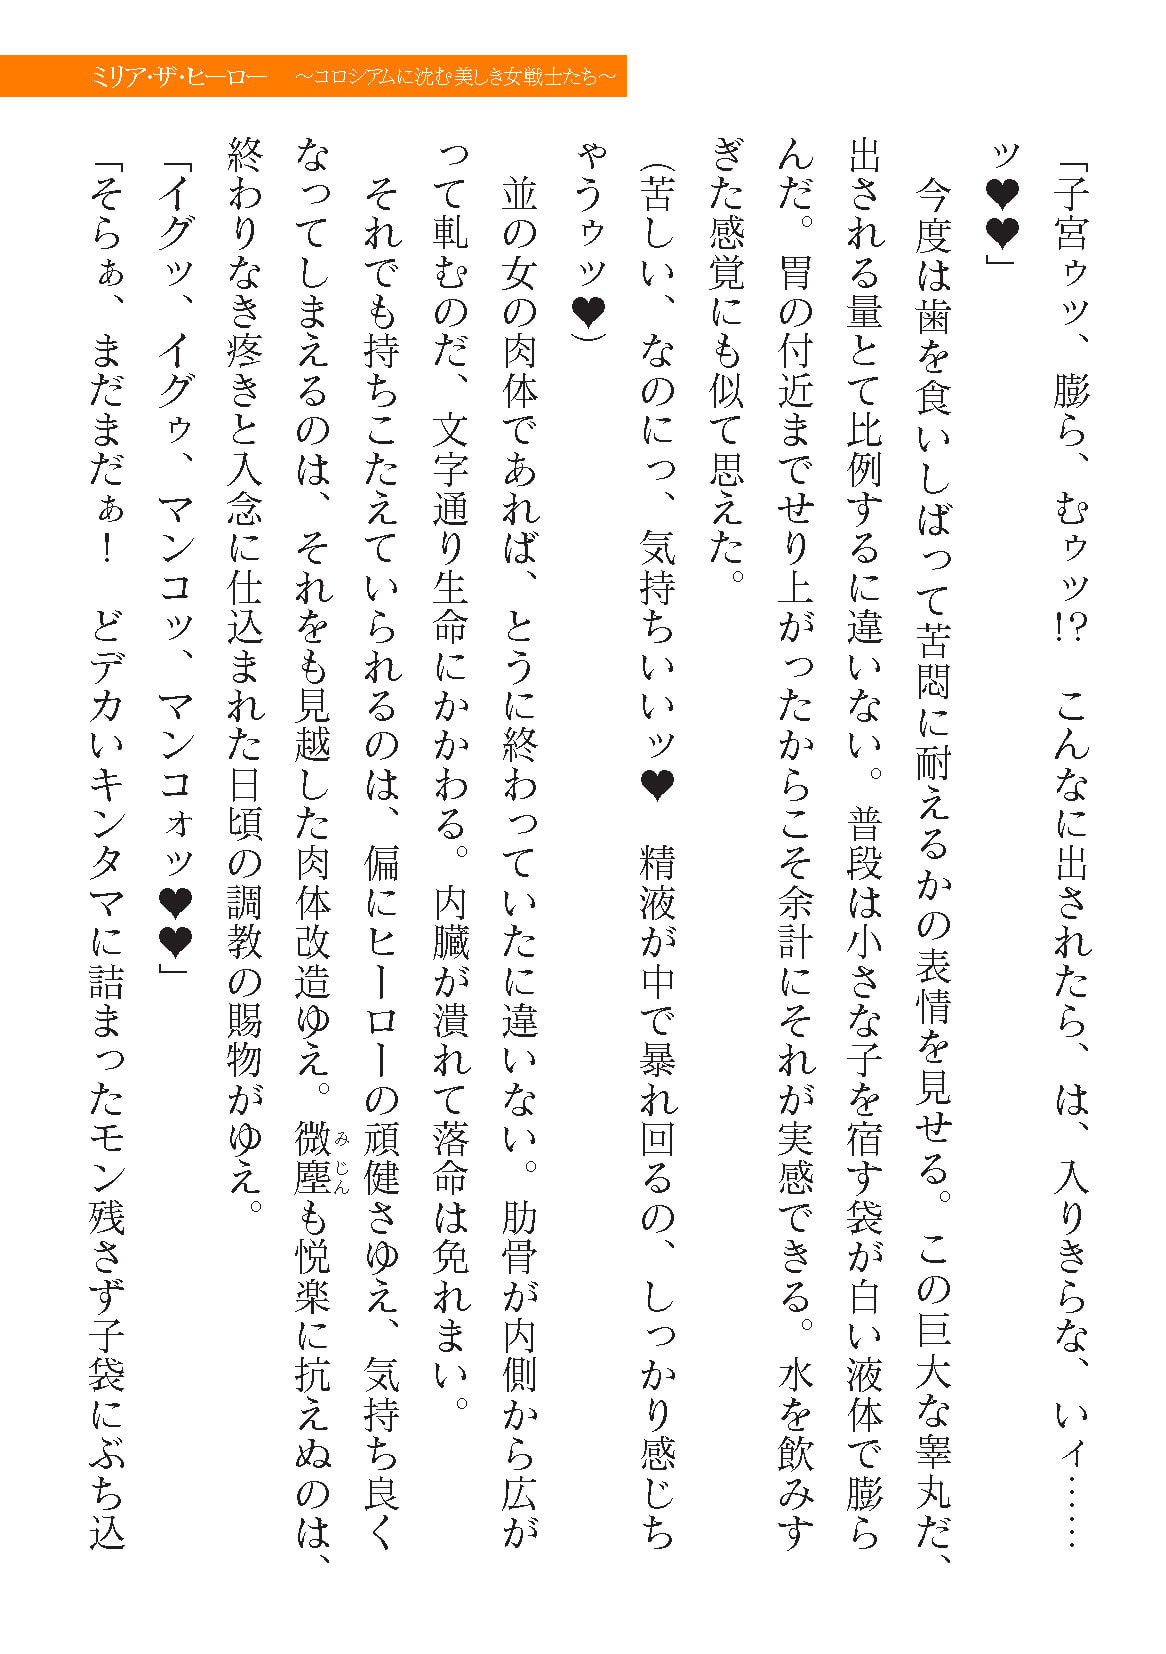 ミリア・ザ・ヒーロー　～コロシアムに沈む美しき女戦士たち～
「子宮ゥッ、膨ら、むゥッ!?　こんなに出されたら、は、入りきらな、いィ……
ッ♥♥」
　今度は歯を食いしばって苦悶に耐えるかの表情を見せる。この巨大な睾丸だ、
出される量とて比例するに違いない。普段は小さな子を宿す袋が白い液体で膨ら
んだ。胃の付近までせり上がったからこそ余計にそれが実感できる。水を飲みす
ぎた感覚にも似て思えた。
（苦しい、なのにっ、気持ちいいッ♥　精液が中で暴れ回るの、しっかり感じち
ゃうゥッ♥）
　並の女の肉体であれば、とうに終わっていたに違いない。肋骨が内側から広が
って軋むのだ、文字通り生命にかかわる。内臓が潰れて落命は免れまい。
　それでも持ちこたえていられるのは、偏にヒーローの頑健さゆえ、気持ち良く
なってしまえるのは、それをも見越した肉体改造ゆえ。微塵も悦楽に抗えぬのは、
みじん
終わりなき疼きと入念に仕込まれた日頃の調教の賜物がゆえ。
「イグッ、イグゥ、マンコッ、マンコォッ♥♥」
「そらぁ、まだまだぁ！　どデカいキンタマに詰まったモン残さず子袋にぶち込